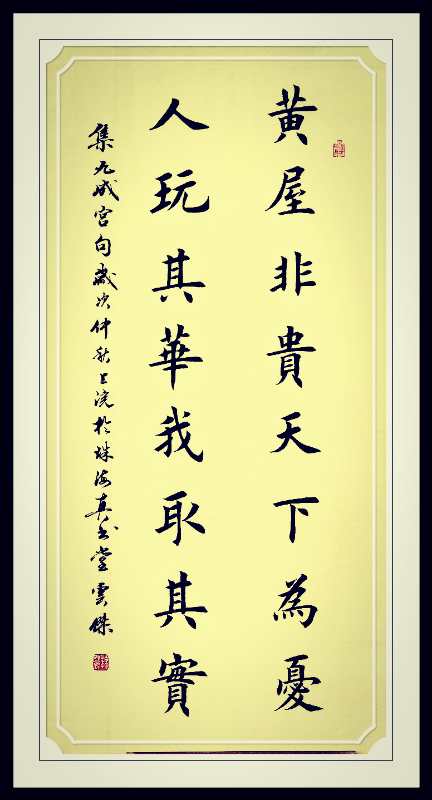 黄屋非貴天下為憂
人玩其華我取其實
集九成宮句歲次仲秋上浣於珠海真書堂雲傑